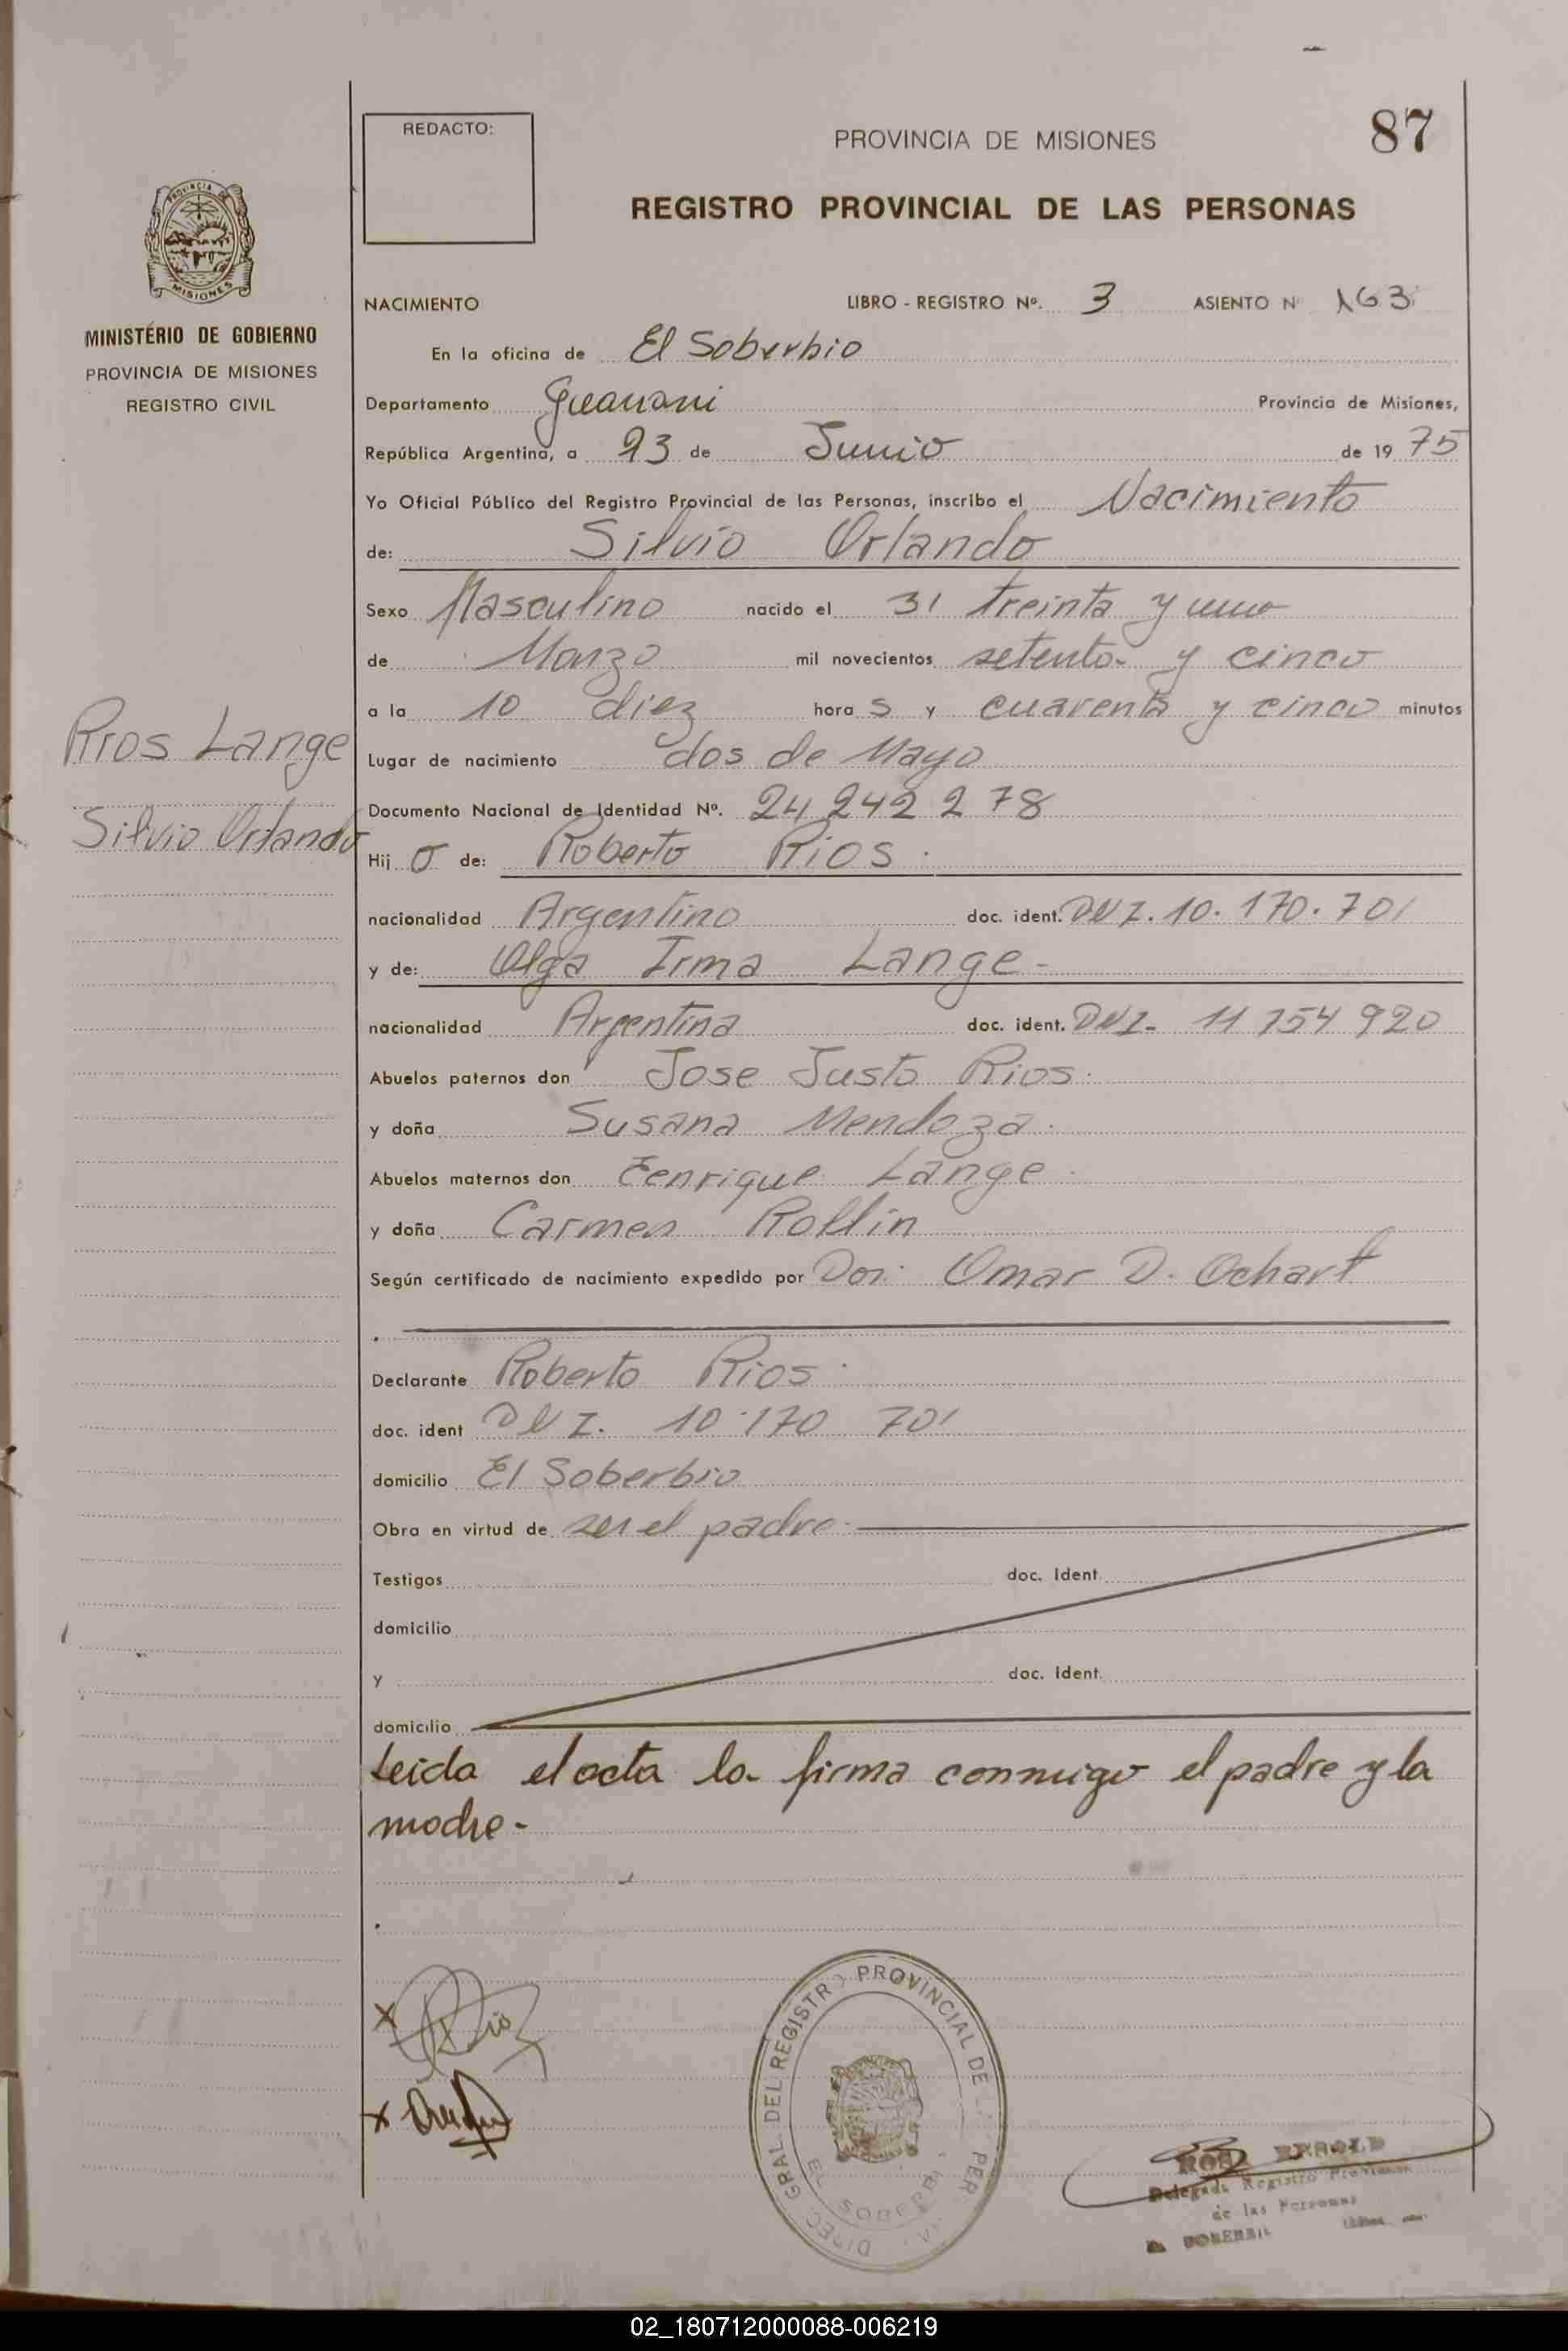 REDACTO:
PROVINCIA DE MISIONES
87
REGISTRO PROVINCIAL DE LAS PERSONAS
PROVINCIA DE
MISIONES
MINISTÉRIO DE GOBIERNO
PROVINCIA DE MISIONES
REGISTRO CIVIL
NACIMIENTO LIBRO - REGISTRO Nº. 3 ASIENTO Nº 163
En la oficina de El Soberbio
Departamento Guarani Provincia de Misiones,
República Argentina, a 23 de Junio de 19 75
Yo Oficial Público del Registro Provincial de las Personas, inscribo el Nacimiento
de: Silvio Orlando
Sexo Masculino nacido el 31 treinta y uno
de Marzo mil novecientos setenta y cinco
a la 10 diez hora s y cuarenta y cinco minutos
Rios Lange
Silvio Orlando
Lugar de nacimiento dos de Mayo
Documento Nacional de Identidad Nº. 24 242 278
Hij o de: Roberto Rios.
nacionalidad Argentino doc. ident. DNI. 10.170.701
y de: Olga Irma Lange-
nacionalidad Argentina doc. ident. DNI- 11 754 920
Abuelos paternos don Jose Justo Rios.
y doña Susana Mendoza.
Abuelos maternos don Eenrique Lange.
y doña Carmen Rollin
Según certificado de nacimiento expedido por Dor: Omar D. Ochart
Declarante Roberto Rios.
doc. ident DNI. 10.170 701
domicilio El Soberbio
Obra en virtud de ser el padre.
Testigos doc. Ident.
domicilio
y doc. Ident.
domicilio
Leida el acta la firma conmigo el padre y la
madre-
x
x
DIREC. GRAL. DEL REGISTRO PROVINCIAL DE PER
EL SOBERBI
ROSA
Delegada Registro Provincial
de las Personas
SOBERBIO
02_180712000088-006219